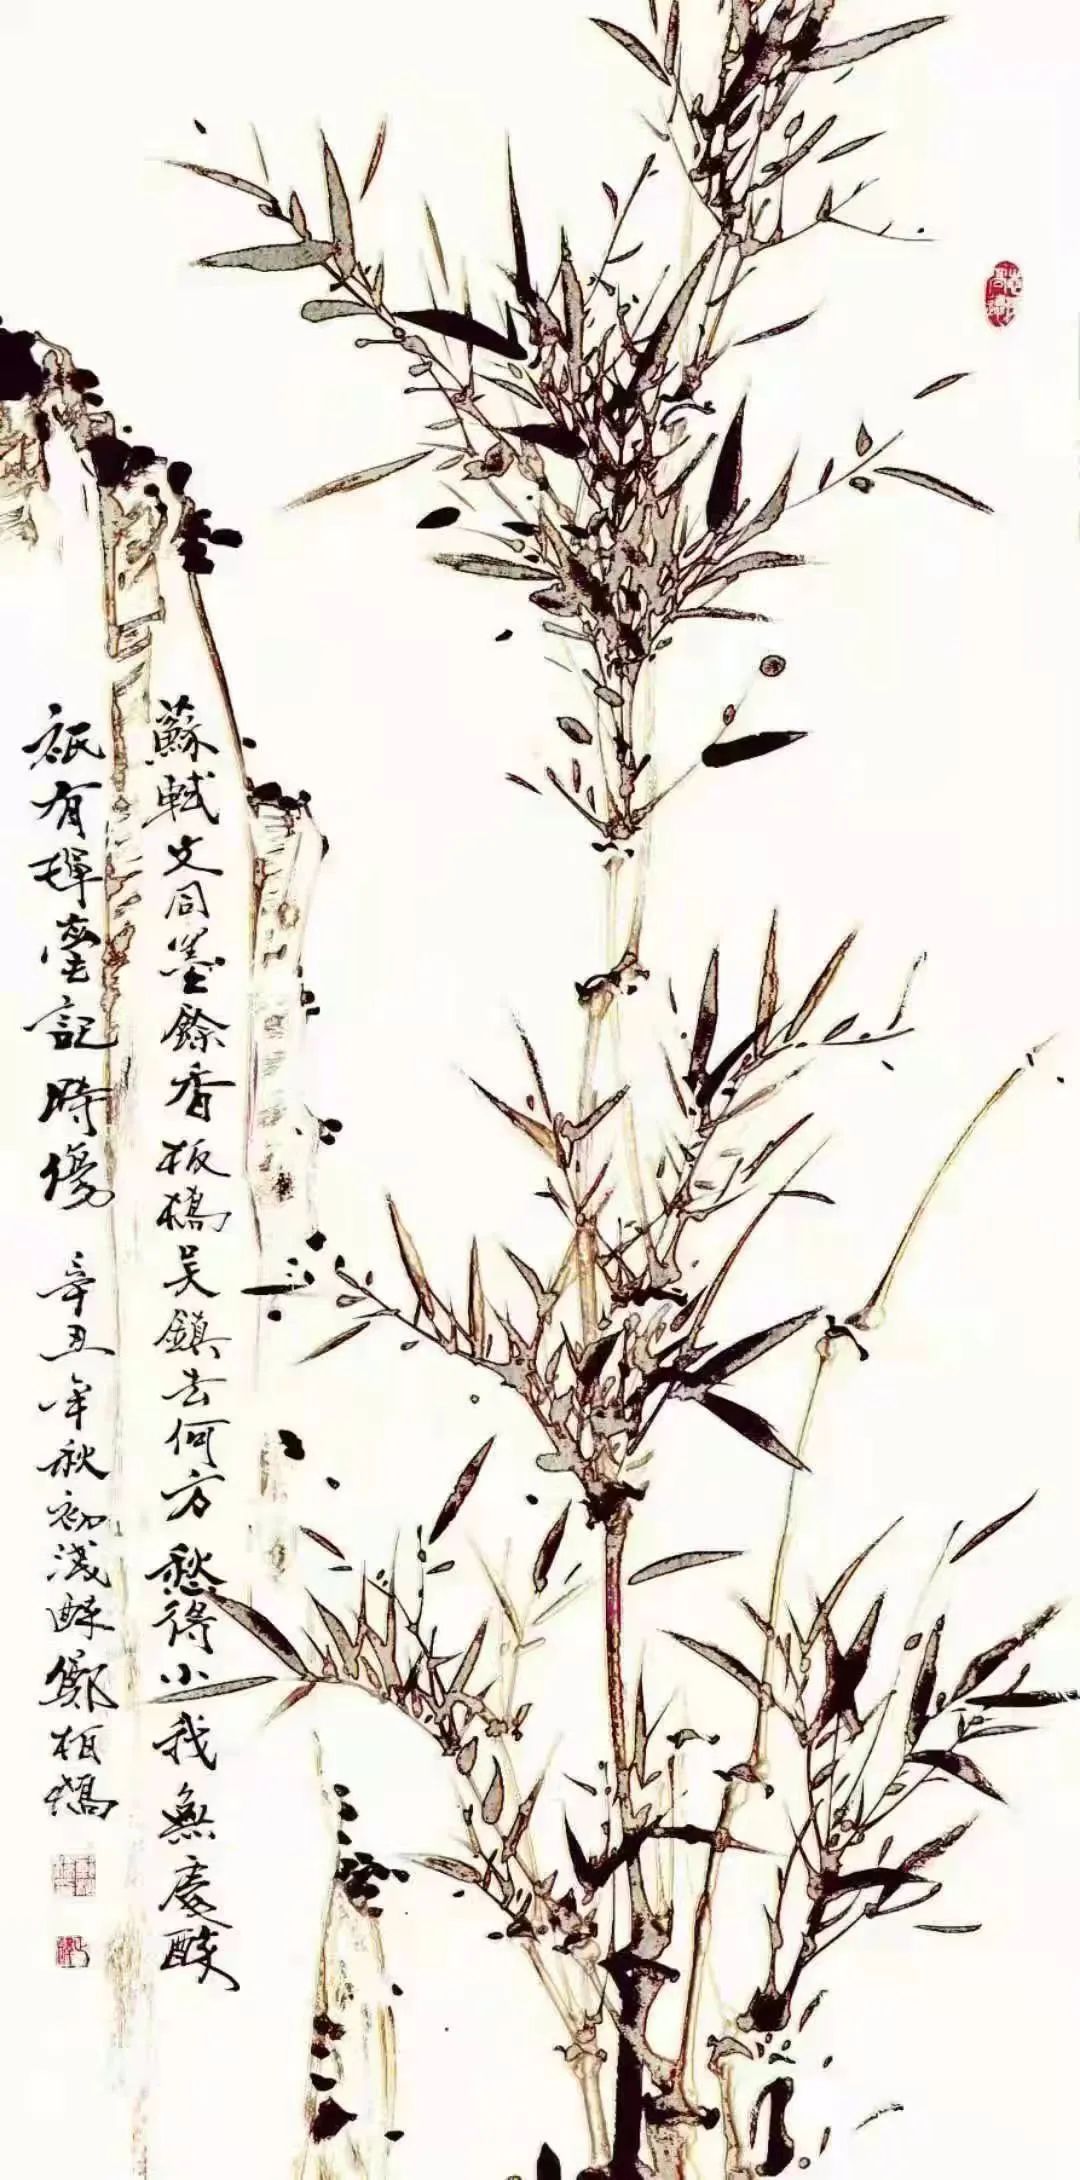 蘇軾文同墨餘香板橋吳鎮去何方愁得小我無處醉
祇有揮毫記時傷 辛丑年秋初淺醉鄭柏橋